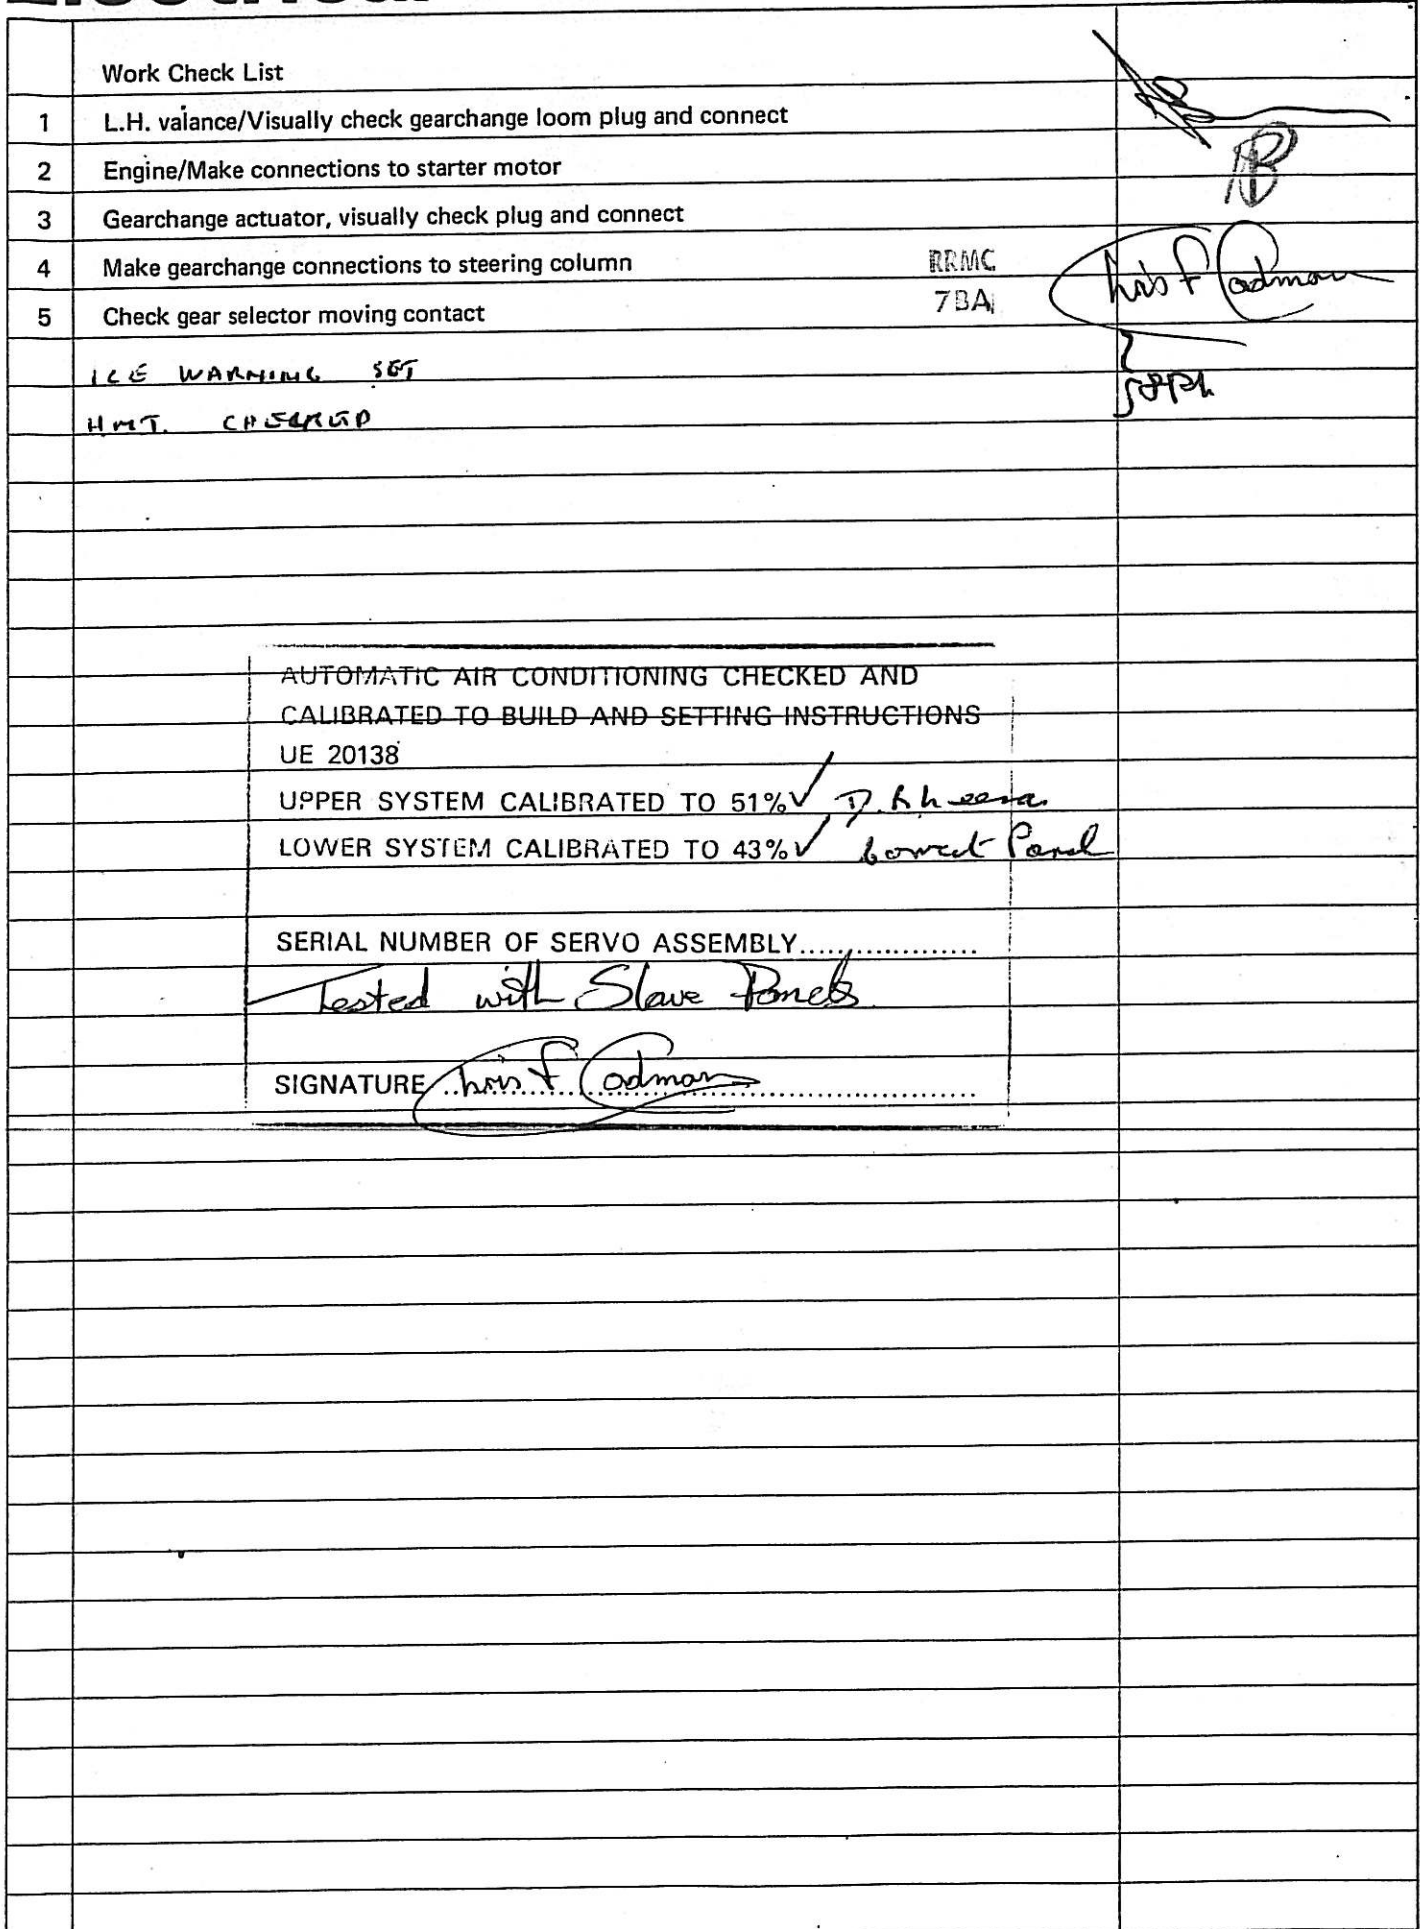 Electrical
Work Check List
1 L.H. valance/Visually check gearchange loom plug and connect
2 Engine/Make connections to starter motor
3 Gearchange actuator, visually check plug and connect
4 Make gearchange connections to steering column RRMC
Chris F Cadman
5 Check gear selector moving contact 7BA
ICE WARNING SET
HMT. CHECKED
AUTOMATIC AIR CONDITIONING CHECKED AND
CALIBRATED TO BUILD AND SETTING INSTRUCTIONS
UE 20138
UPPER SYSTEM CALIBRATED TO 51% ✓
LOWER SYSTEM CALIBRATED TO 43% ✓
SERIAL NUMBER OF SERVO ASSEMBLY....................
Tested with Slave Panels
SIGNATURE Chris F Cadman